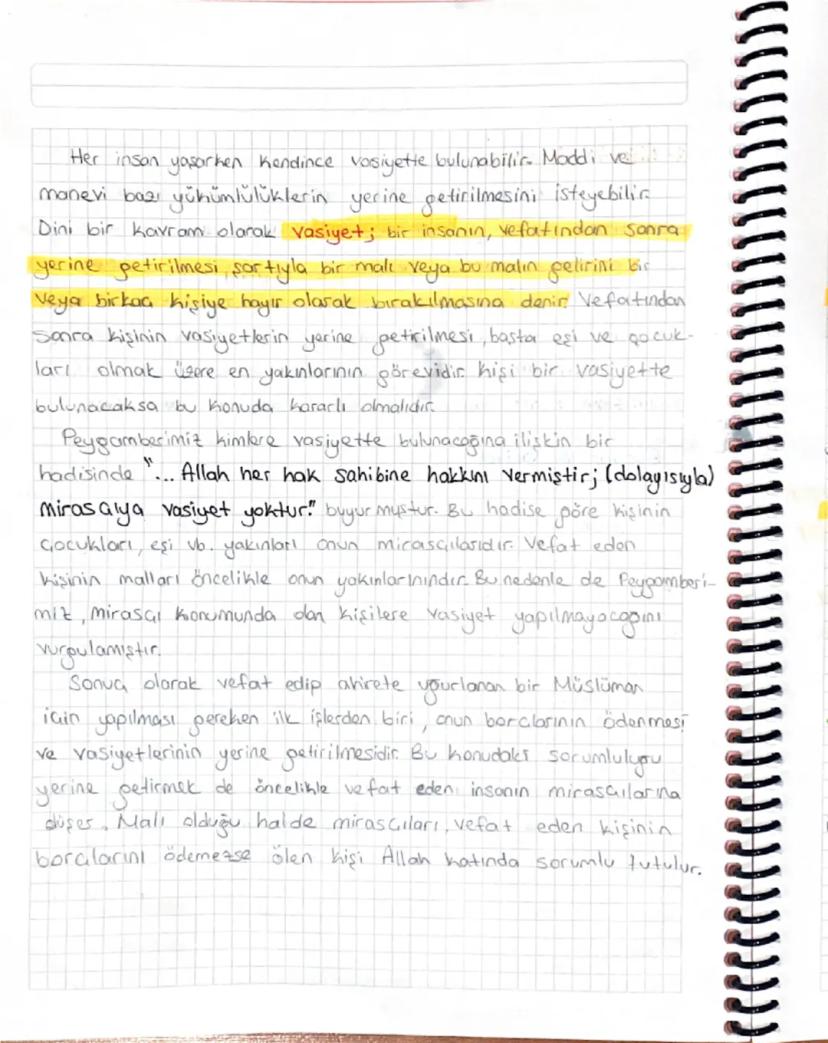 Her insan yaşarken kendince vasiyette bulunabilir. Maddi ve
manevi bazı yükümlülüklerin yerine getirilmesini isteyebilir.
Dini bir kavram olarak vasiyet; bir insanın, vefatından sonra
yerine getirilmesi şartıyla bir malı veya bu malın gelirini bir
veya birkaç kişiye hayır olarak bırakılmasına denir. Vefatından
sonra kişinin vasiyetlerin yerine getirilmesi, başta eşi ve çocuk-
ları olmak üzere en yakınlarının görevidir. Kişi bir vasiyette
bulunacaksa bu konuda kararlı olmalıdır.
Peygamberimiz kimlere vasiyette bulunacağına ilişkin bir
hadisinde "... Allah her hak sahibine hakkını vermiştir; (dolayısıyla)
mirasçıya vasiyet yoktur." buyurmuştur. Bu hadise göre kişinin
çocukları, eşi vb. yakınları onun mirasçılarıdır. Vefat eden
kişinin malları öncelikle onun yakınlarınındır. Bu nedenle de Peygamberi-
miz, mirasçı konumunda olan kişilere vasiyet yapılmayacağını
vurgulamıştır.
Sonuç olarak vefat edip ahirete uğurlanan bir Müslüman
için yapılması gereken ilk işlerden biri, onun borçlarının ödenmesi
ve vasiyetlerinin yerine getirilmesidir. Bu konudaki sorumluluğu
yerine getirmek de öncelikle vefat eden insanın mirasçılarına
düşer. Malı olduğu halde mirasçıları, vefat eden kişinin
borçlarını ödemezse ölen kişi Allah katında sorumlu tutulur.